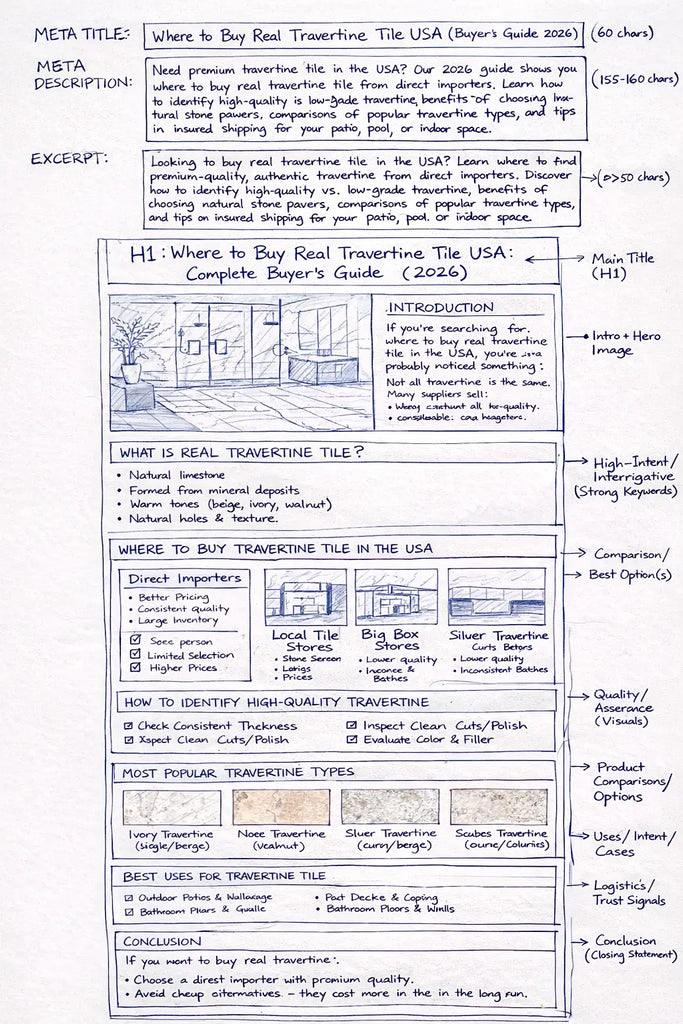 META TITLE:
Where to Buy Real Travertine Tile USA (Buyer's Guide 2026)
(60 chars)
META
DESCRIPTION:
Need premium travertine tile in the USA? Our 2026 guide shows you
where to buy real travertine tile from direct importers. Learn how
to identify high-quality is low-gade travertine, benefits of choosing
tural stone pawers, comparisons of popular travertine types, and tips
in insured shipping for your patio, pool, or indoor space.
(155-160 chars)
EXCERPT:
Looking to buy real travertine tile in the USA? Learn where to find
premium-quality, authentic travertine from direct importers. Discover
how to identify high-quality vs. low-grade travertine, benefits of
choosing natural stone pavers, comparisons of popular travertine types,
and tips on insured shipping for your patio, pool. or indoor space.
>50 chars)
H1: Where to Buy Real Travertine Tile USA:
Complete Buyer's Guide (2026)
Main Title
(H1)
INTRODUCTION
If you're searching for.
where to buy real travertine
tile in the USA, you're
probably noticed something:
Not all travertine is the same.
Many suppliers sell:
• all quality.
•
Intro + Hero
Image
WHAT IS REAL TRAVERTINE TILE?
• Natural limestone
• Formed from mineral deposits
• Warm tones (beige, ivory, walnut)
• Natural holes & texture.
High-Intent/
Interrigative
(Strong Keywords)
WHERE TO BUY TRAVERTINE TILE IN THE USA
Comparison/
Best Option(s)
Direct Importers
• Better Pricing
• Consistent quality
• Large Inventory
☑ person
☑ Limited Selection
☑ Higher Prices
Local Tile
Stores
• Stone Sereen
•
• Prices
Big Box
Stores
• Lower quality
• &
Bathes
Siluer Travertine
Curts Betons
• Lower quality
• Inconsistent Bathes
HOW TO IDENTIFY HIGH-QUALITY TRAVERTINE
☑ Check Consistent Thekness
☑ Xspect Clean Cuts/Polish
☑ Inspect Clean Cuts/Polish
☑ Evaluate Color & Filler
Quality/
Asserance
(Visuals)
MOST POPULAR TRAVERTINE TYPES
Ivory Travertine
(siогle/berge)
Noee Travertine
(Vealnut)
Sluer Travertine
(curry/berge)
Scubes Travertine
(ourie/Coluries)
Product
Comparisons/
Options
Uses/Intent/
Cases
BEST USES FOR TRAVERTINE TILE
☑ Outdoor Potios & Wallowage
☑ Bathroom Pluars & Gualle
• Poct Decke & Coping
• Bathroom Ploors & Wmlls
Logistics/
Trust Signals
CONCLUSION
If you wont to buy real travertine:.
• Choose a direst importer with promium quality.
• Aveid cheup citernatives – they cost more in the in the long run.
Conclusion
(Closing Statement)